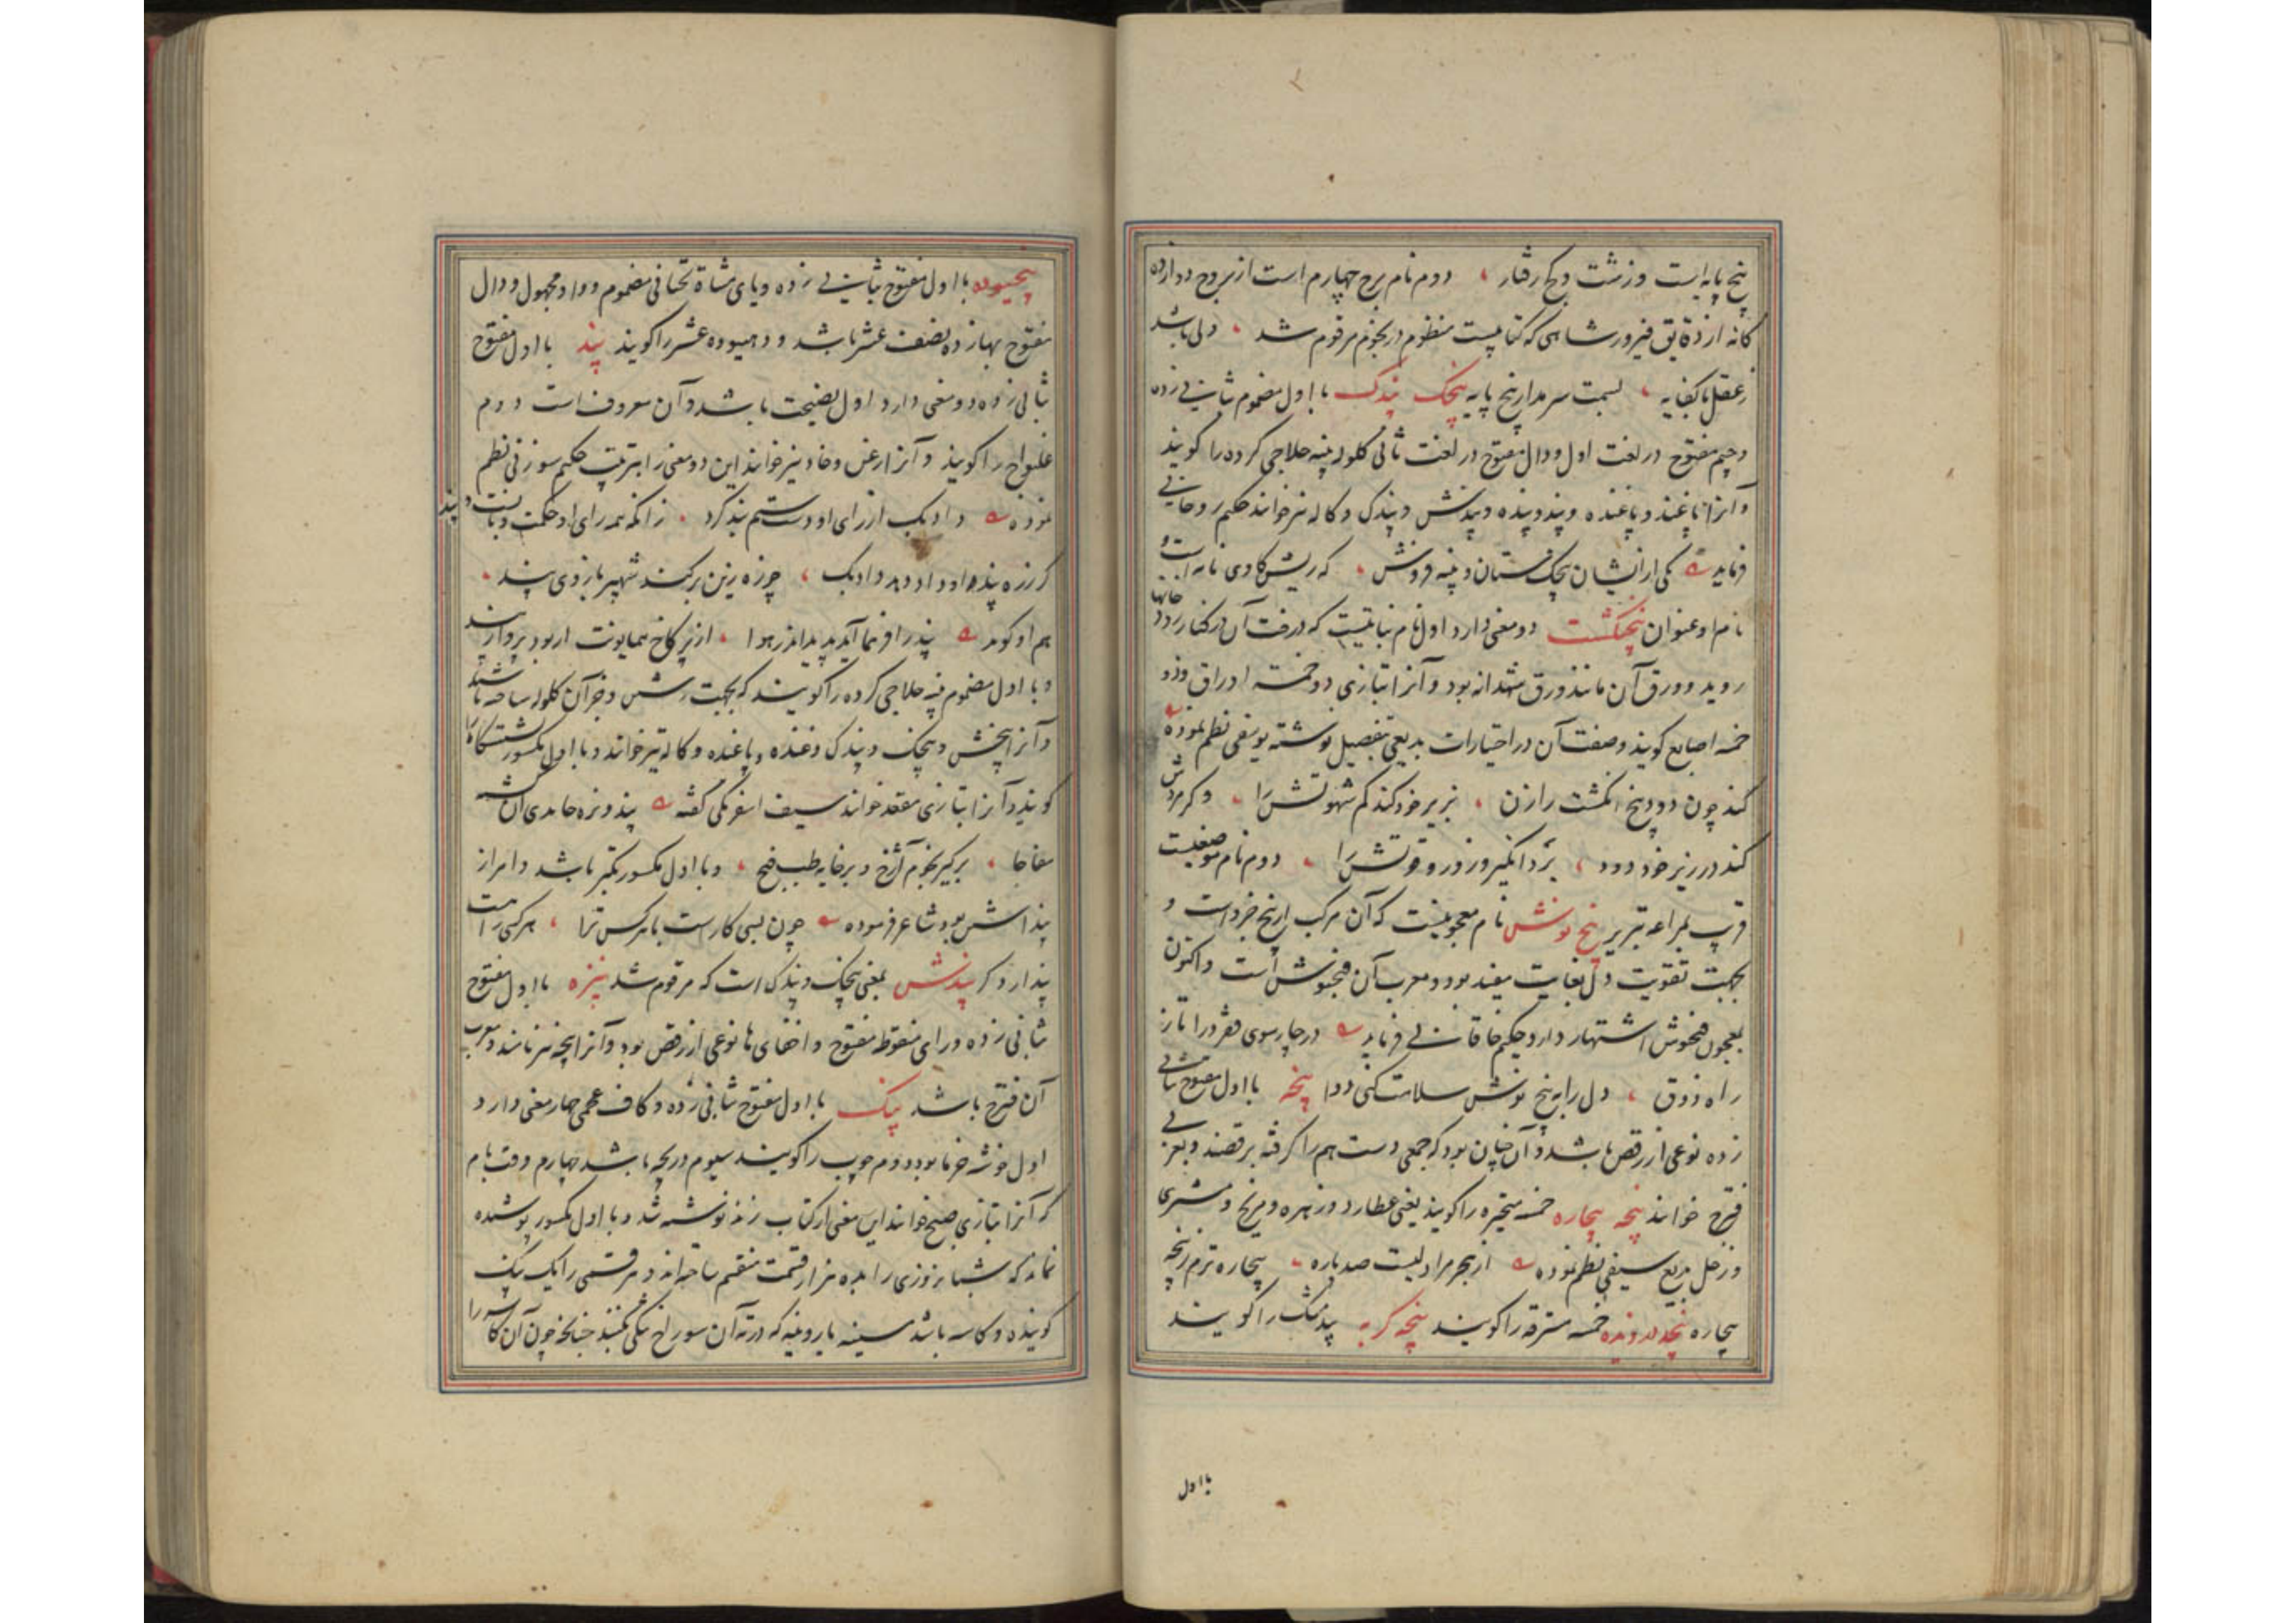 پنج پایه است و زشت و کج رفتار ، دوم نام برج چهارم است از بروج دوازده
کانه از دقایق فیروز شاهی که کتابیست منظوم در نجوم مرقوم شد ، دلی باشد
ز عقل با کفایه ، بسمت سرمدار پنج پایه پنجک پندک با اول مضموم بثانی زده
و جیم مفتوح در لغت اول و دال مفتوح در لغت ثانی کلوله پنبه حلاجی کرده را کویند
و آنرا پاغند و پاغنده و پند و پنده و پندش و پندک و کاله نیز خوانند حکیم روحانی
فرماید یکی از ایشان پنجک ستان و پنبه فروش ، که ریش کاوی نامست و
نام او عنوان پنجنکشت دو معنی دارد اول نام نباتیست که درخت آن در کنار رود خانها
روید و ورق آن مانند ورق شهدانه بود و آنرا بتازی ذو خمسة اوراق و ذو
خمسه اصابع کویند و صفت آن در اختیارات بدیعی بتفصیل نوشته یوسفی نظم نموده
کند چون دود پنج انکشت را زن ، بزیر خود کند کم شهوتش را ، و کر مردش
کند در زیر خود دود ، برد انکیز و زور و قوتش را ، دوم نام موضعیست
قریب بمراغه تبریز پنج نوش نام معجونیست که آن مرکب از پنج جزو است و
بجهت تقویت دل بغایت مفید بود و معرب آن فنجنوش است و اکنون
بمعجون فنجنوش اشتهار دارد حکیم خاقانی فرماید در چار سوی فقر درا تا ز
راه ذوق ، دل را به پنج نوش سلامت کنی دوا پنجه با اول مفتوح بثانی
زده نوعی از رقص باشد و آن چنان بود که جمعی دست هم را کرفته برقصند و بعربی
فنزج خوانند پنجه بیچاره خمسه متحیره را کویند یعنی عطارد و زهره و مریخ و مشتری
و زحل بدیع سیفی نظم نموده از هجر مرا دلیست صد پاره ، بیچاره ترم ز پنجه
بیچاره پنجه دزدیده خمسه مسترقه را کویند پنجه کربه بیدمشک را کویند
با اول
پنجیوده با اول مفتوح بثانی زده و یای مثناة تحتانی مضموم و واو مجهول و دال
مفتوح بهازده نصف عشر باشد و دهیوده عشر را کویند پند با اول مفتوح
ثانی زده دو معنی دارد اول نصیحت باشد و آن معروفست دوم
غلیواج را کویند و آنرا زغن و خاد نیز خوانند این دو معنی را بترتیب حکیم سوزنی نظم
نموده داد یک از رای او دست ستم بند کرد ، زانکه همه رای او حکمت و پند
هم او کوید پند را فر هما آید پدید اندر هوا ، از بر کاخ همایونت ار بود پرواز پند
و با اول مضموم پنبه حلاجی کرده را کویند که بجهت رشتن و جز آن کلوله ساخته باشند
و آنرا پنجش و پنجک و پندک و غنده و پاغنده و کاله نیز خوانند و با اول مکسور نشستکاه را
کویند و آنرا بتازی مقعد خوانند سیف اسفرنکی کفته
مفاجا ، و با اول مکسور تکبر باشد و امر از
پنداشتن بود شاعر فرموده چون بسی کارست با هر کس ترا ، هر کسی را
پندار دکر پندش بمعنی پنجک و پندک است که مرقوم شد پنزه با اول مفتوح
ثانی زده و رای منقوطه مفتوح و اخفای ها نوعی از رقص بود و آنرا پنجه نیز نامند و معرب
آن فنزج باشد پنک با اول مفتوح ثانی زده و کاف عجمی چهار معنی دارد
اول خوشه خرما بود دوم چوب را کویند سیوم دریچه باشد چهارم وقت بام
که آنرا بتازی صبح خوانند این معنی از کتاب زند نوشته شد و با اول مکسور پوشیده
نماند که شبانروزی را بده هزار قسمت منقسم ساخته اند و هر قسمی را یک پنک
کویند و کاسه باشد مسینه یا روینه که در ته آن سوراخ تنکی کنند چنانچه چون آن کاسه را